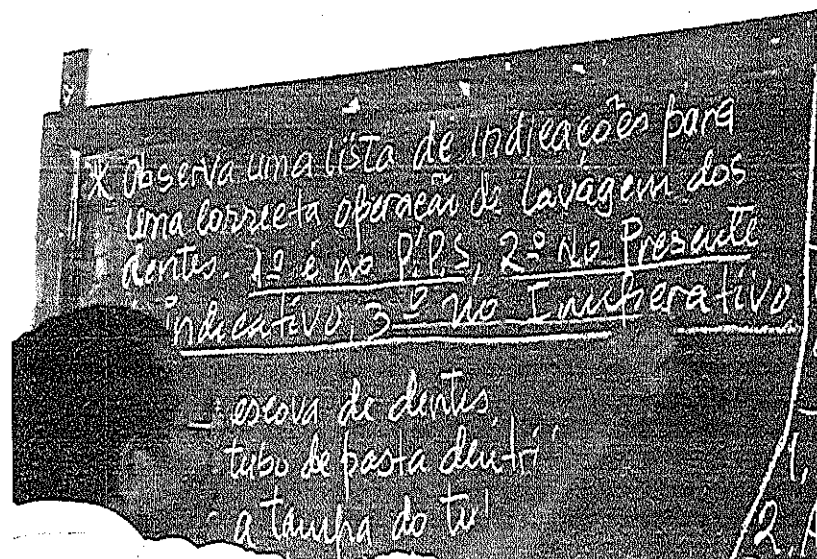 * Observa uma lista de indicações para
uma correcta operação de lavagem dos
dentes. 1º é no P.P.S, 2º No Presente
indicativo, 3º no Imperativo
— escova de dentes
tubo de pasta dentrí
a tampa do tu
1,
2,